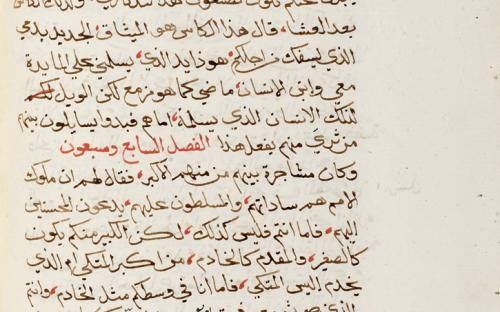 بعد العشا، قال هذا الكاس هو الميثاق الجديد بدمي
الذي يسفك من اجلكم، هوذا يد الذي يسلمني علي المايدة
معي وابن الانسان، ماضي كما هو مزمع لكن الويل
لذلك الانسان الذي يسلمه، اما هم فبدوا يسايلون بينهم
من تري منهم يفعل هذا الفصل السابع وسبعون
وكان مشاجرة بينهم من منهم الاكبر، فقال لهم ان ملوك
الامم هم ساداتهم، والمسلطون عليهم، يدعون المحسنين
اليهم، فاما انتم فليس كذلك، لكن الكبير منكم يكون
كالصغير، والمقدم كالخادم، من اكبر المتكي ام الذي
يخدم اليس المتكي، فاما انا في وسطكم مثل الخادم، وانتم